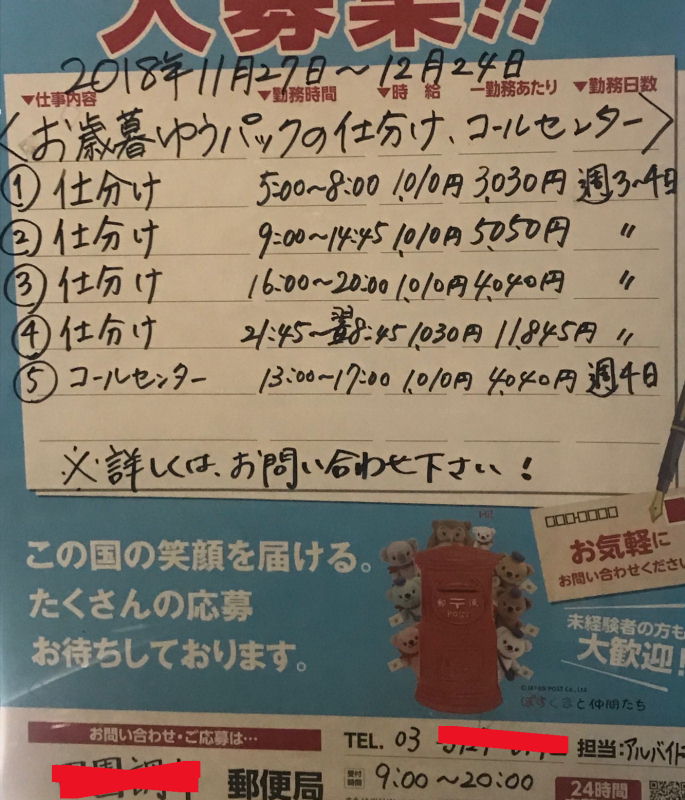 人募集!!
2018年11月27日～12月24日
▼仕事内容 ▼勤務時間 ▼時 給 一勤務あたり ▼勤務日数
〈お歳暮ゆうパックの仕分け、コールセンター〉
① 仕分け 5:00～8:00 1,010円 3,030円 週3～4日
② 仕分け 9:00～14:45 1,010円 5,050円 〃
③ 仕分け 16:00～20:00 1,010円 4,040円 〃
④ 仕分け 21:45～翌8:45 1,030円 11,845円 〃
⑤ コールセンター 13:00～17:00 1,010円 4,040円 週4日
※詳しくは、お問い合わせ下さい!
Hi!
お気軽に
お問い合わせくださ
この国の笑顔を届ける。
たくさんの応募
お待ちしております。
郵〒便
POST
未経験者の方も
大歓迎!
ぽすくまと仲間たち
お問い合わせ・ご応募は…
TEL. 03 担当:アルバイト
郵便局
受付時間 9:00～20:00
24時間